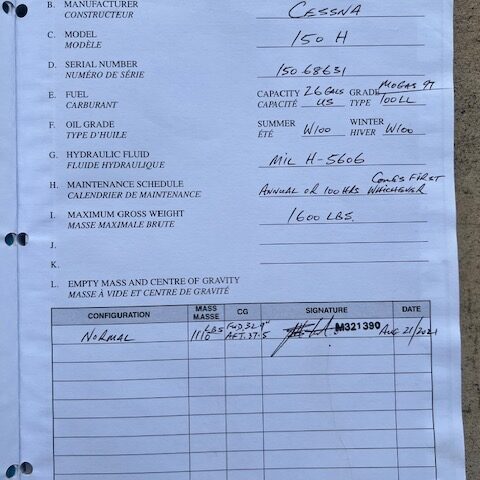 B. MANUFACTURER CESSNA
CONSTRUCTEUR
C. MODEL 150 H
MODÈLE
D. SERIAL NUMBER 15068631
NUMÉRO DE SÉRIE
MOGAS 97
E. FUEL CAPACITY 26 GALS GRADE
CARBURANT CAPACITÉ US TYPE 100LL
F. OIL GRADE SUMMER WINTER
TYPE D'HUILE ÉTÉ W100 HIVER W100
G. HYDRAULIC FLUID MIL H-5606
FLUIDE HYDRAULIQUE
H. MAINTENANCE SCHEDULE COMES FIRST
CALENDRIER DE MAINTENANCE ANNUAL OR 100 HRS WHICHEVER
I. MAXIMUM GROSS WEIGHT 1600 LBS.
MASSE MAXIMALE BRUTE
J.
K.
L. EMPTY MASS AND CENTRE OF GRAVITY
MASSE À VIDE ET CENTRE DE GRAVITÉ
CONFIGURATION MASS CG SIGNATURE DATE
M.ASSE
NORMAL 1110 LBS FWD 32.9" M321390 AUG 21/2021
AFT. 37.5